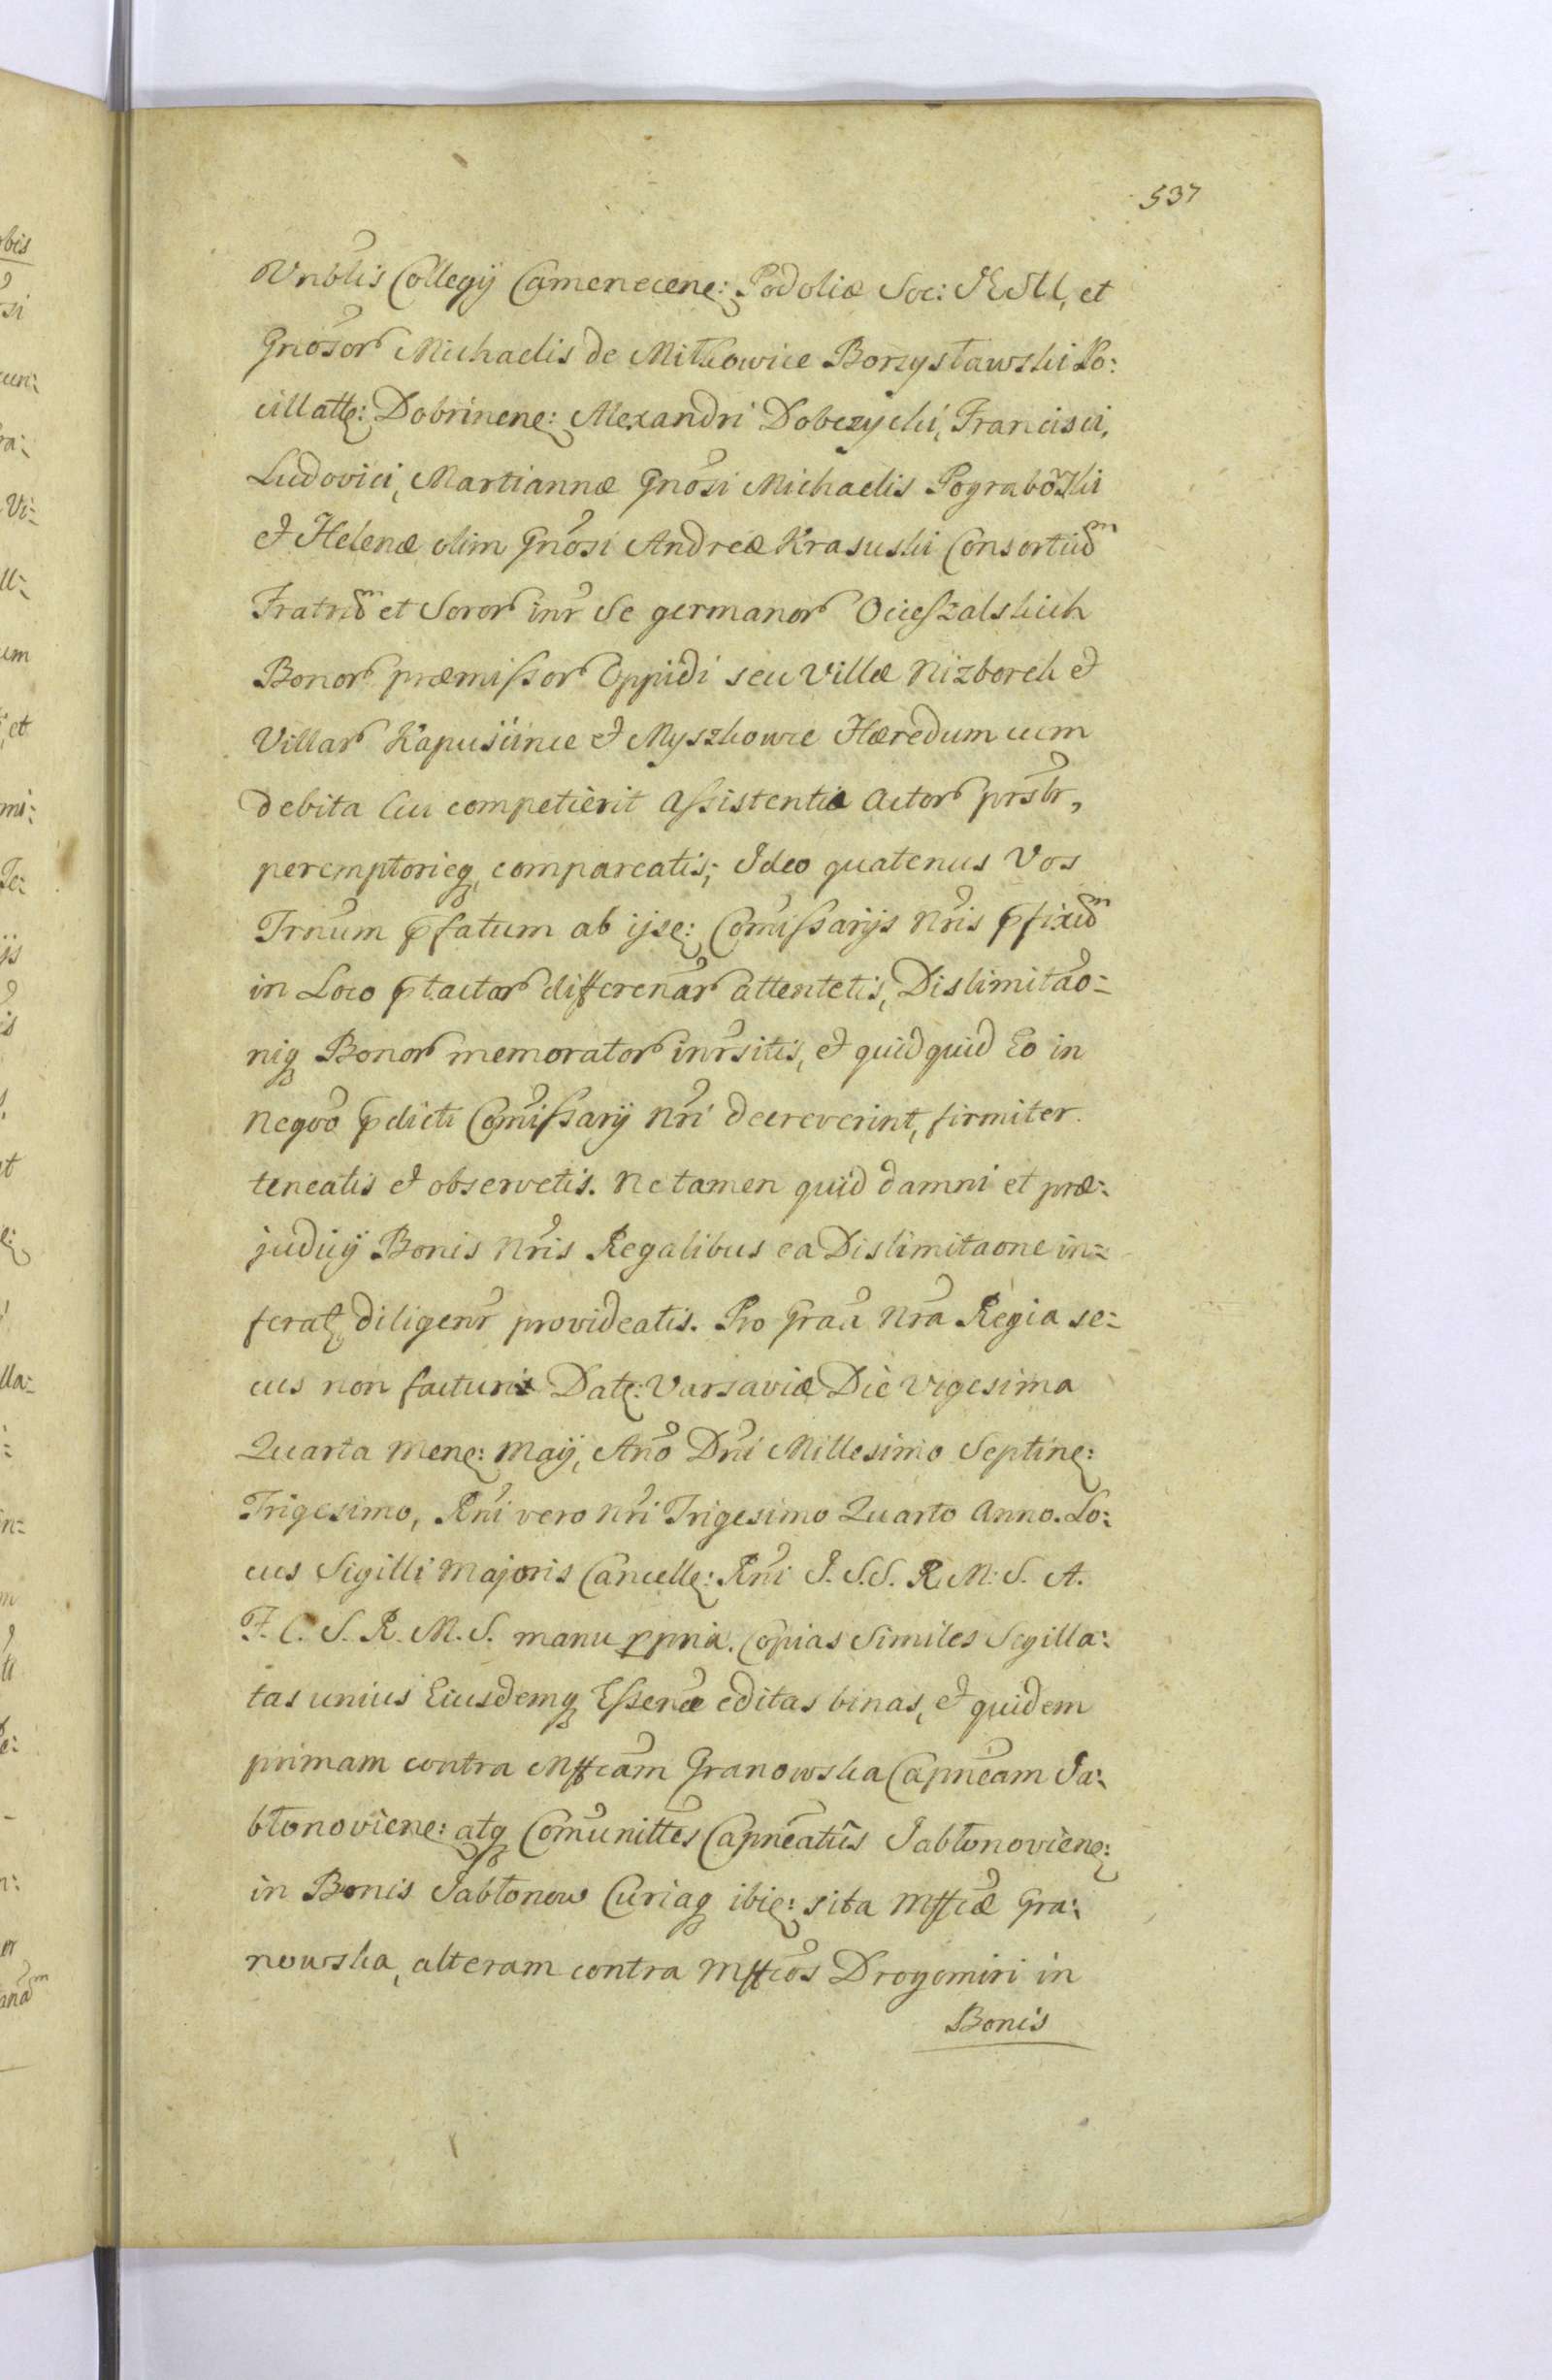 537
Vnblis Collegÿ Camenecenę: Podoliæ Soc: JESU, et
Gnosor Michaelis de Mitkowice Borzysławski Po:
cillattę: Dobrinenę: Alexandri Dobczycki, Francisci,
Ludovici, Martiannæ Gnosi Michaelis Pograbõski
et Helenæ olim Gnosi Andreæ Krasuski Consortiũ
Fratrũ et Soror inr Se germanor Ocieszalskich
Bonor præmissor Oppidi seu Villæ Nizborek et
Villar Kapuścince et Myszkowce Hæredum cum
debita Cui competierit Assistentia Actor prsbr,
peremptorieq, compareatis; Ideo quatenus Vos
Trnum p̃fatum ab ijsę: Comissarijs Nris p̃fixũ
in Loco p̃tactar differenar attentetis, Dislimitao-
niq Bonor memorator inrsitis, et quidquid Eo in
Negoo p̃dicti Comissarÿ Nri decreverint, firmiter
teneatis et observetis. Ne tamen quid damni et præ-
judicÿ Bonis Nris Regalibus ea Dislimitaone in-
ferat, diligenr provideatis. Pro Graa Nra Regia se-
cus non facturi Datę: Varsaviæ Die Vigesima
Quarta Menę: Maÿ, Ano Dni Millesimo Septinę:
Trigesimo, Rni vero Nri Trigesimo Quarto Anno. Lo-
cus Sigilli Majoris Cancellę: Rni J. S.S. R. M. S. A.
F. C. S. R. M. S. manu ppria. Copias Similes Sigilla-
tas unius Eiusdemq Essenæ editas binas, et quidem
primam contra Mffcam Granowska Capneam Ja-
błonovienę: atq Comunittes Capneatus Jabłonovienę:
in Bonis Jabłonow Curiaq ibię: sita Mffcæ Gra-
nowska, alteram contra Mffcos Drogomiri in
Bonis